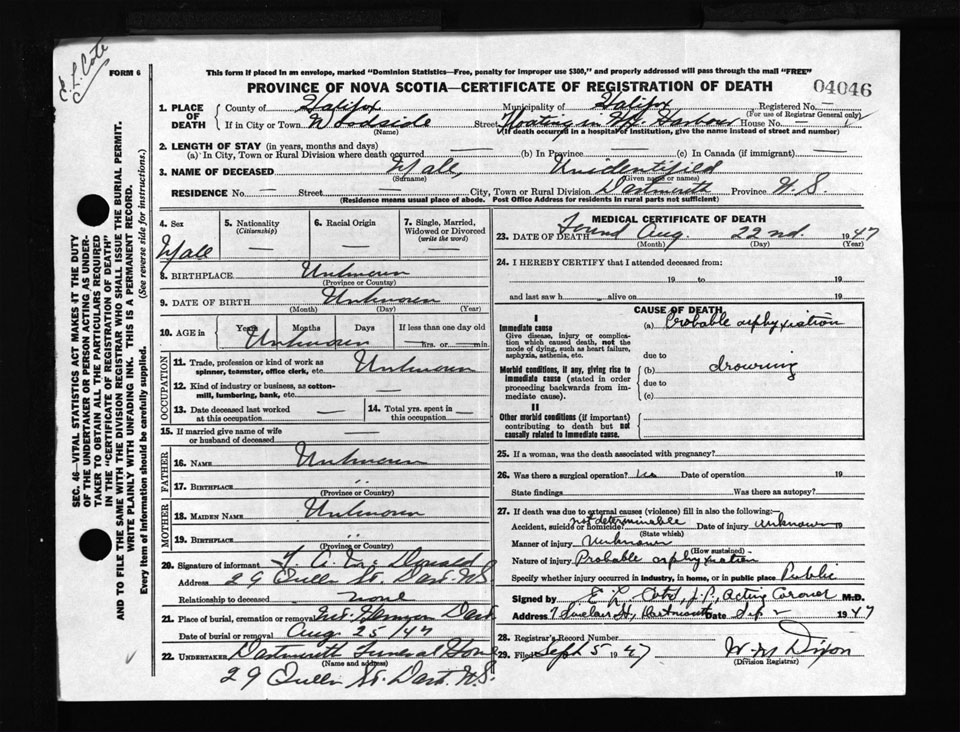 E. L. Cote
FORM 6
This form if placed in an envelope, marked "Dominion Statistics—Free, penalty for improper use $300," and properly addressed will pass through the mail "FREE"
PROVINCE OF NOVA SCOTIA—CERTIFICATE OF REGISTRATION OF DEATH
04046
1. PLACE OF DEATH
County of Halifax Municipality of Halifax Registered No. —
(For use of Registrar General only)
If in City or Town Woodside Street Floating in Hfx. Harbour House No. —
(Name) (If death occurred in a hospital or institution, give the name instead of street and number)
2. LENGTH OF STAY (in years, months and days)
(a) In City, Town or Rural Division where death occurred — (b) In Province — (c) In Canada (if immigrant) —
3. NAME OF DECEASED Male, Unidentified
(Surname) (Given name or names)
RESIDENCE No. — Street — City, Town or Rural Division Dartmouth Province N.S.
(Residence means usual place of abode. Post Office Address for residents in rural parts not sufficient)
4. Sex
Male
5. Nationality
(Citizenship)
—
6. Racial Origin
—
7. Single, Married, Widowed or Divorced
(write the word)
—
8. BIRTHPLACE Unknown
(Province or Country)
9. DATE OF BIRTH Unknown
(Month) (Day) (Year)
10. AGE in Years Months Days If less than one day old
Unknown — hrs. or — min.
OCCUPATION
11. Trade, profession or kind of work as spinner, teamster, office clerk, etc. Unknown
12. Kind of industry or business, as cotton-mill, lumbering, bank, etc. —
13. Date deceased last worked at this occupation —
14. Total yrs. spent in this occupation —
15. If married give name of wife or husband of deceased —
FATHER
16. NAME Unknown
17. BIRTHPLACE "
(Province or Country)
MOTHER
18. MAIDEN NAME Unknown
19. BIRTHPLACE "
(Province or Country)
20. Signature of informant Donald
Address 29 Queen St. Dart. N.S.
Relationship to deceased none
21. Place of burial, cremation or removal Mt. Hermon Dart
Date of burial or removal Aug 25/47
22. UNDERTAKER Dartmouth Funeral Home
(Name and address)
29 Queen St. Dart. N.S.
MEDICAL CERTIFICATE OF DEATH
23. DATE OF DEATH Found Aug. 22nd. 1947
(Month) (Day) (Year)
24. I HEREBY CERTIFY that I attended deceased from:
19 to 19
and last saw h — alive on 19
CAUSE OF DEATH
I
Immediate cause
Give disease, injury or complication which caused death, not the mode of dying, such as heart failure, asphyxia, asthenia, etc.
(a) Probable asphyxiation
due to
Morbid conditions, if any, giving rise to immediate cause (stated in order proceeding backwards from immediate cause).
(b) drowning
due to
(c)
II
Other morbid conditions (if important) contributing to death but not causally related to immediate cause.
25. If a woman, was the death associated with pregnancy?
26. Was there a surgical operation? Date of operation 19
State findings Was there an autopsy?
27. If death was due to external causes (violence) fill in also the following:
Accident, suicide or homicide? not determinable Date of injury unknown 19
(State which)
Manner of injury Unknown
(How sustained)
Nature of injury Probable asphyxiation
Specify whether injury occurred in industry, in home, or in public place Public
Signed by E. L. Cote, J.P., Acting Coroner M.D.
Address 7 Sinclair St., Dartmouth Date Sep 2 1947
28. Registrar's Record Number
29. Filed Sept 5 1947 Dixon
(Division Registrar)
SEC. 46—VITAL STATISTICS ACT MAKES IT THE DUTY
OF THE UNDERTAKER OR PERSON ACTING AS UNDER-
TAKER TO OBTAIN ALL THE PARTICULARS REQUIRED
IN THE "CERTIFICATE OF REGISTRATION OF DEATH"
AND TO FILE THE SAME WITH THE DIVISION REGISTRAR WHO SHALL ISSUE THE BURIAL PERMIT.
WRITE PLAINLY WITH UNFADING INK. THIS IS A PERMANENT RECORD.
Every item of information should be carefully supplied. (See reverse side for instructions.)